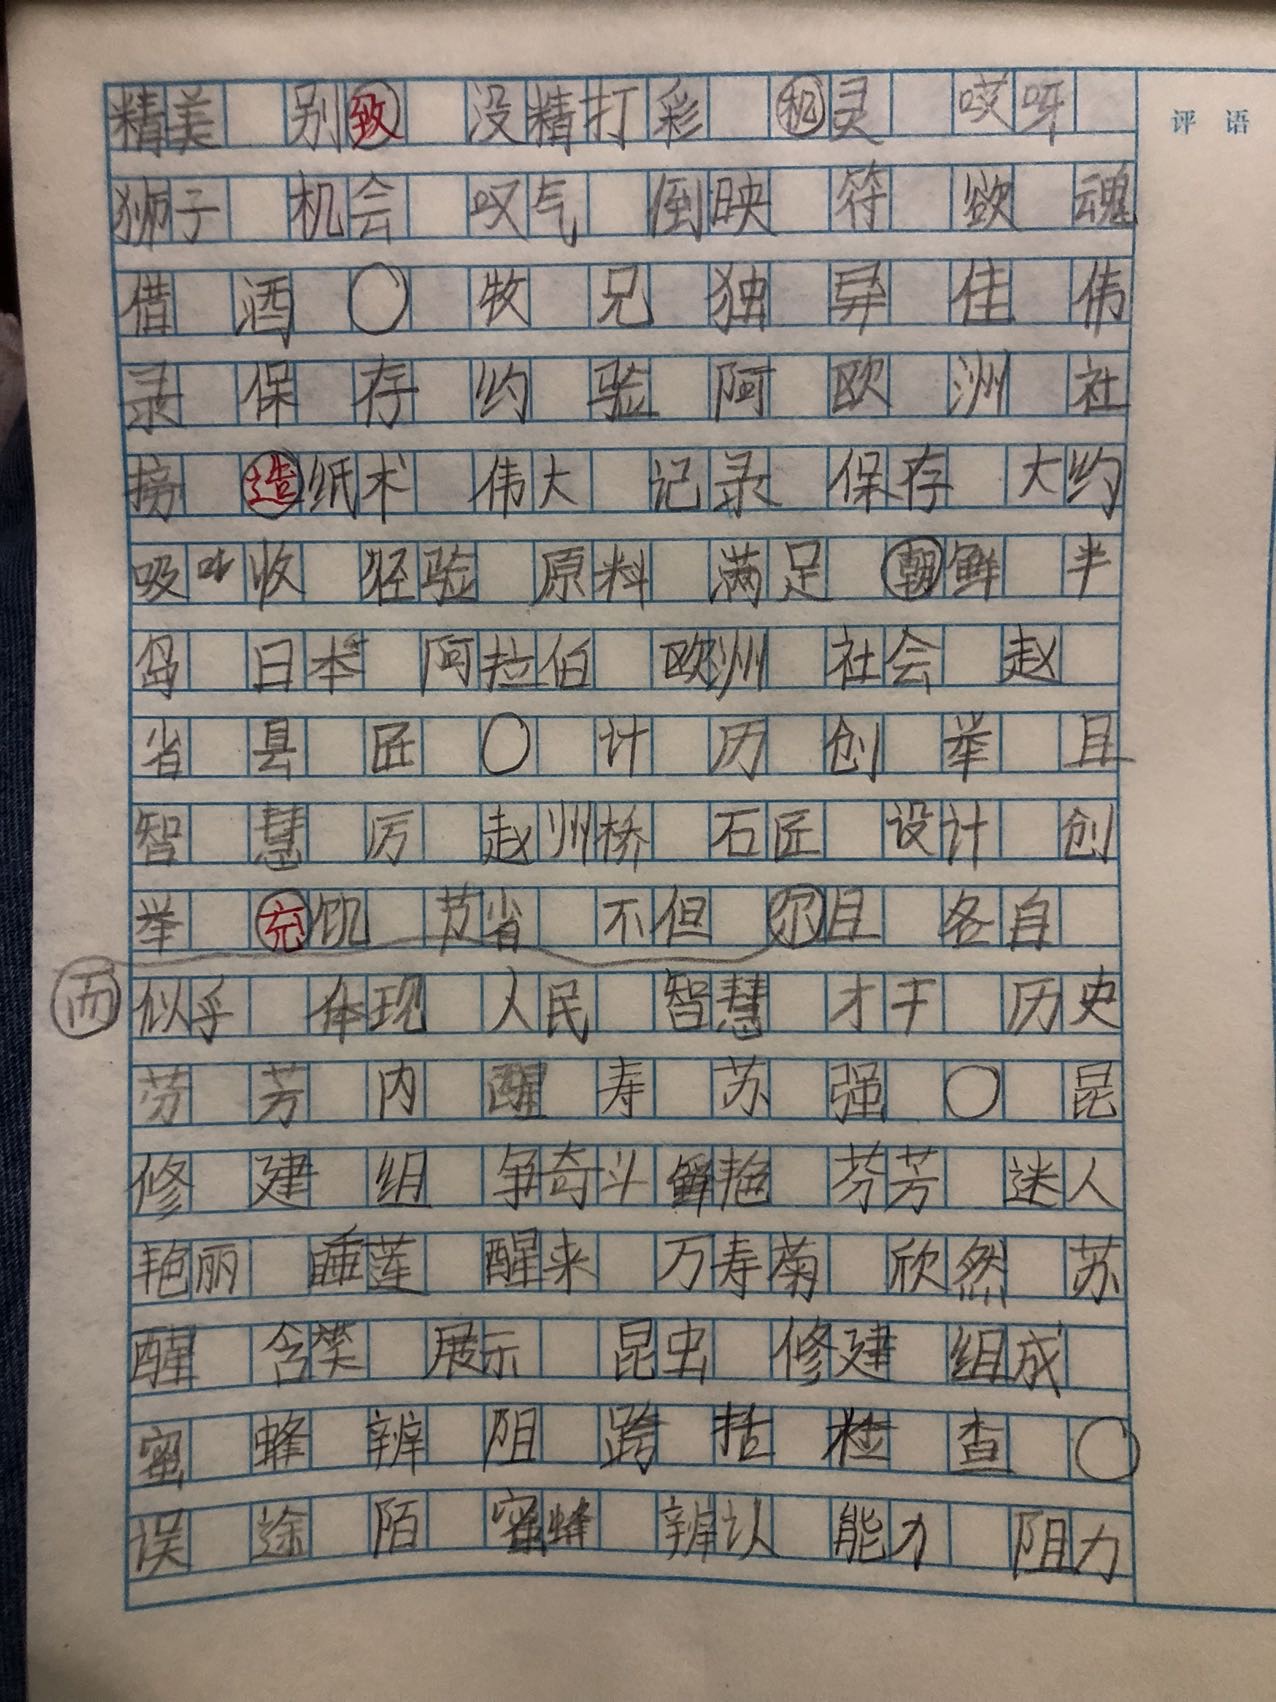 评语
精美 别致 没精打彩 机灵 哎呀
狮子 机会 叹气 倒映 符 欲 魂
借 酒 ○ 牧 兄 独 异 佳 伟
录 保 存 约 验 阿 欧 洲 社
造纸术 伟大 记录 保存 大约
吸收 经验 原料 满足 朝鲜 半
岛 日本 阿拉伯 欧洲 社会 赵
省 县 匠 ○ 计 历 创 举 且
智 慧 厉 赵州桥 石匠 设计 创
举 充饥 节省 不但 尔且 各自
而 似乎 体现 人民 智慧 才干 历史
芬 芳 内 醒 寿 苏 强 ○ 昆
修 建 组 争奇斗 鲜艳 芬芳 迷人
艳丽 睡莲 醒来 万寿菊 欣然 苏
醒 含笑 展示 昆虫 修建 组成
蜜 蜂 辨 阻 跨 括 检 查 ○
误 途 陌 蜜蜂 辨认 能力 阻力